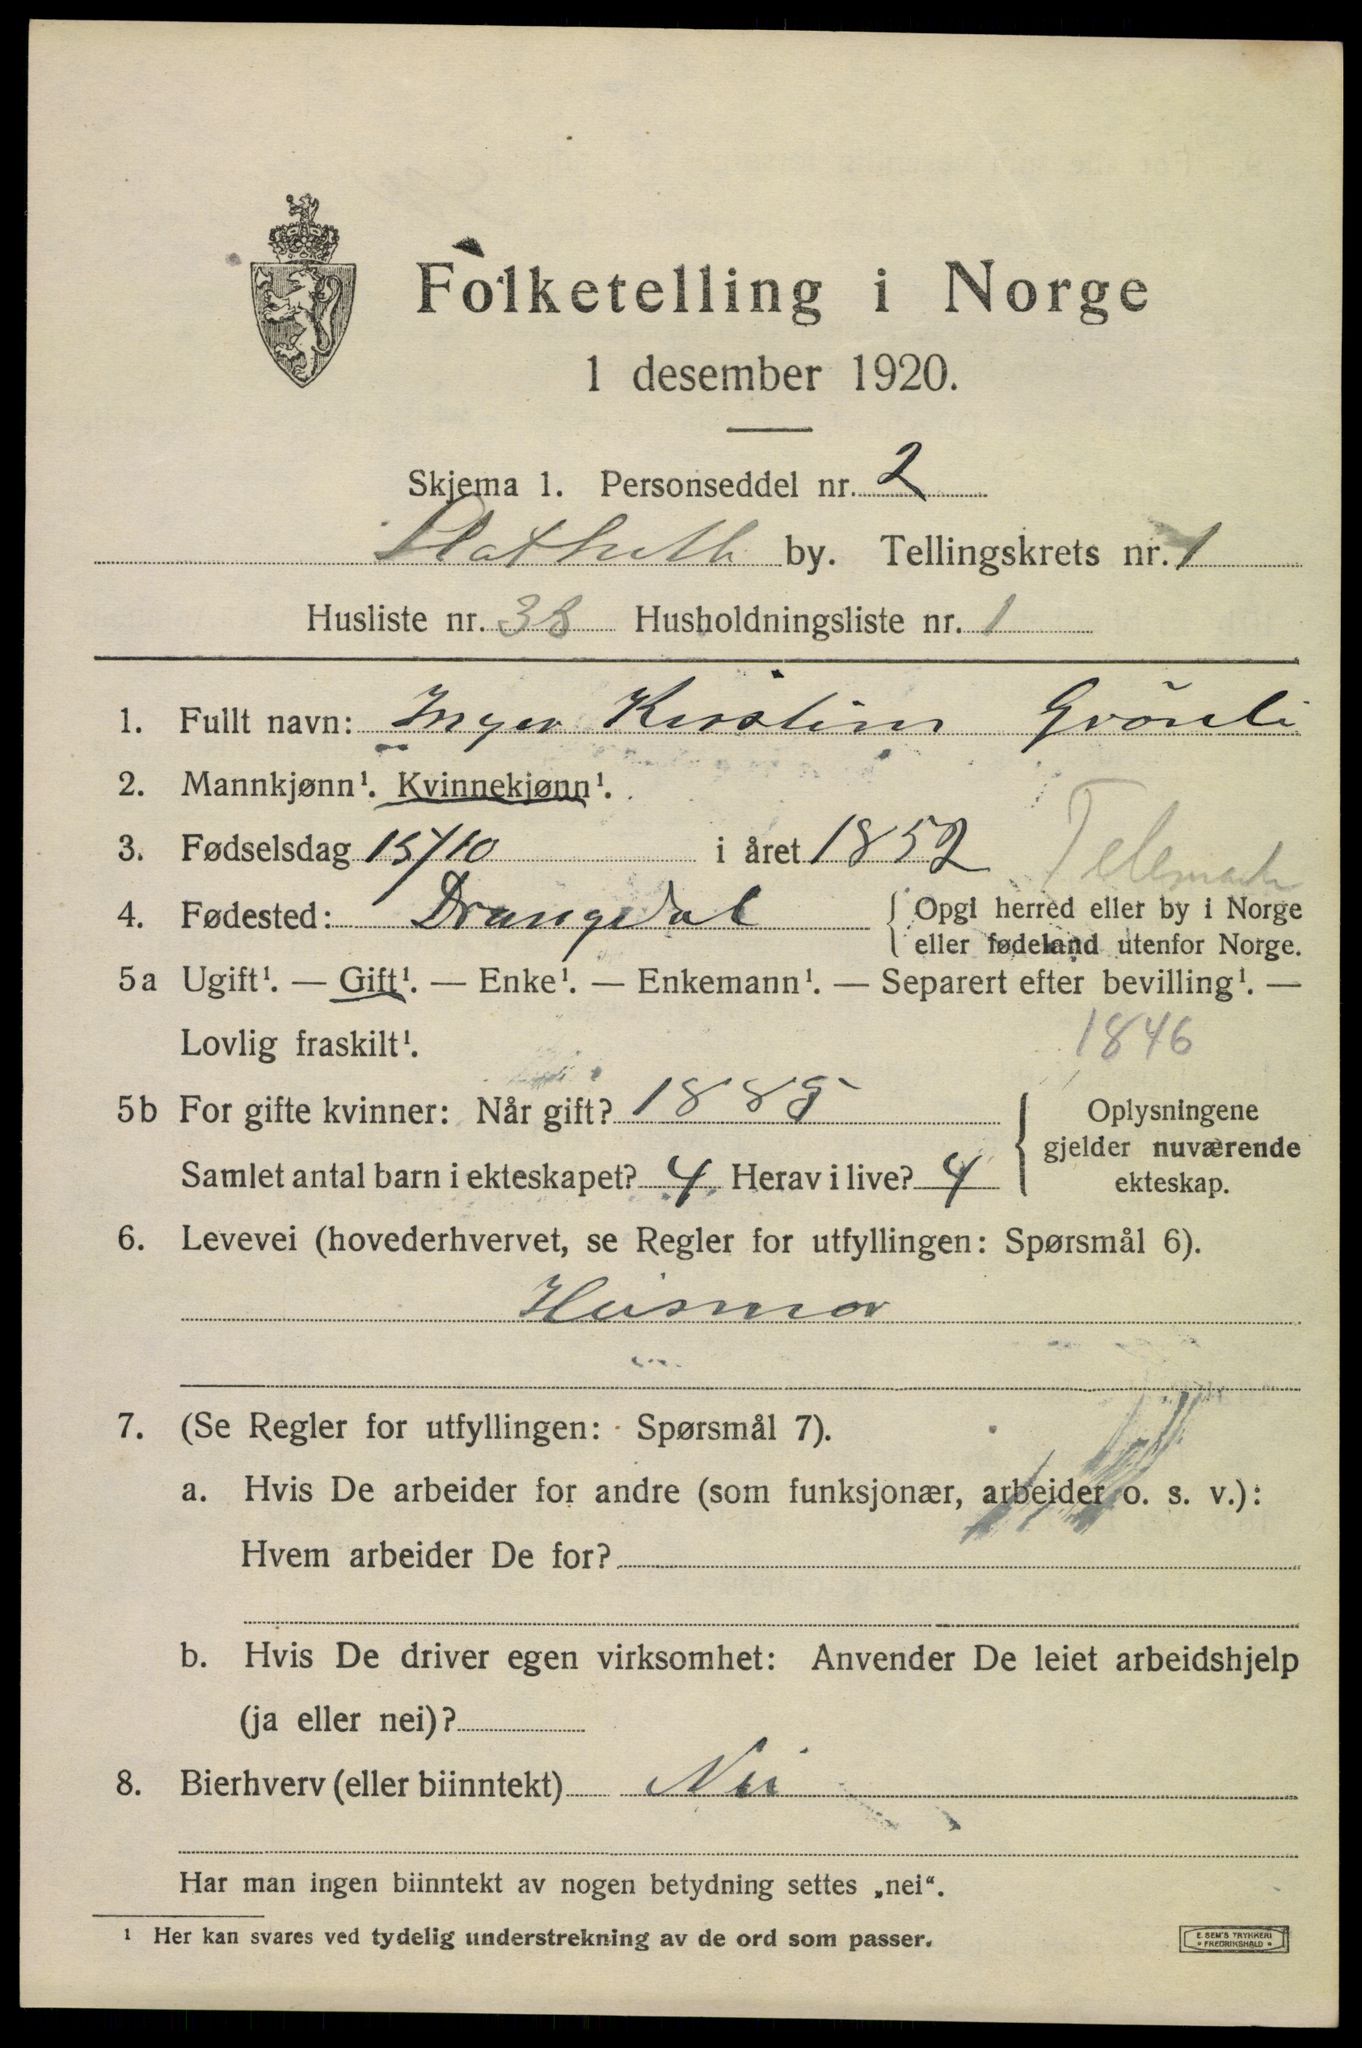 Folketelling i Norge
1 desember 1920.
Skjema 1. Personseddel nr. 2
Stathelle by. Tellingskrets nr. 1
Husliste nr. 38 Husholdningsliste nr. 1
1. Fullt navn: Inger Kirstine Grönli
2. Mannkjønn¹. Kvinnekjønn¹.
3. Fødselsdag 15/10 i året 1852 Telemark
4. Fødested: Drangedal { Opgi herred eller by i Norge
eller fødeland utenfor Norge.
5a Ugift¹. — Gift¹. — Enke¹. — Enkemann¹. — Separert efter bevilling¹. —
Lovlig fraskilt¹. 1846
5b For gifte kvinner: Når gift? 1885 { Oplysningene
gjelder nuværende
Samlet antal barn i ekteskapet? 4 Herav i live? 4 ekteskap.
6. Levevei (hovederhvervet, se Regler for utfyllingen: Spørsmål 6).
Husmor
7. (Se Regler for utfyllingen: Spørsmål 7).
a. Hvis De arbeider for andre (som funksjonær, arbeider o. s. v.):
Hvem arbeider De for?
b. Hvis De driver egen virksomhet: Anvender De leiet arbeidshjelp
(ja eller nei)?
8. Bierhverv (eller biinntekt) Nei
Har man ingen biinntekt av nogen betydning settes „nei“.
¹ Her kan svares ved tydelig understrekning av de ord som passer.
E. SEM'S TRYKKERI
FREDRIKSHALD